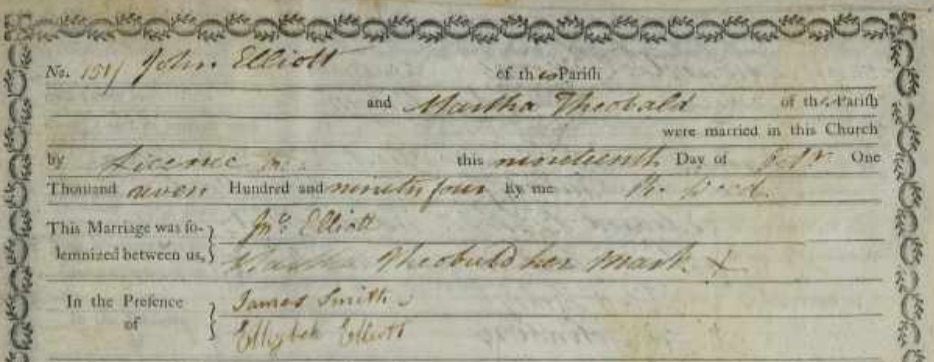 No. John Elliott of this Parish
and Martha Theobald of this Parish
were married in this Church
by Licence this nineteenth Day of One
Thousand seven Hundred and ninety four By me
This Marriage was so- } Jno Elliott
lemnized between us, } Martha Theobald her mark X
In the Presence } James Smith
of } Elliott